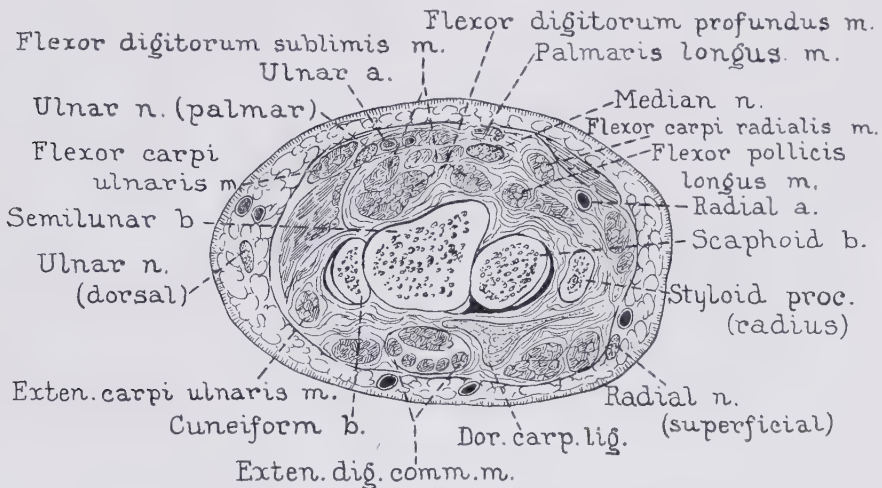 Flexor digitorum profundus m.
Flexor digitorum sublimis m.
Palmaris longus m.
Ulnar a.
Ulnar n. (palmar)
Median n.
Flexor carpi radialis m.
Flexor carpi
ulnaris m.
Flexor pollicis
longus m.
Radial a.
Semilunar b
Scaphoid b.
Ulnar n.
(dorsal)
Styloid proc.
(radius)
Exten. carpi ulnaris m.
Radial n.
(superficial)
Cuneiform b.
Dor. carp. lig.
Exten. dig. comm. m.